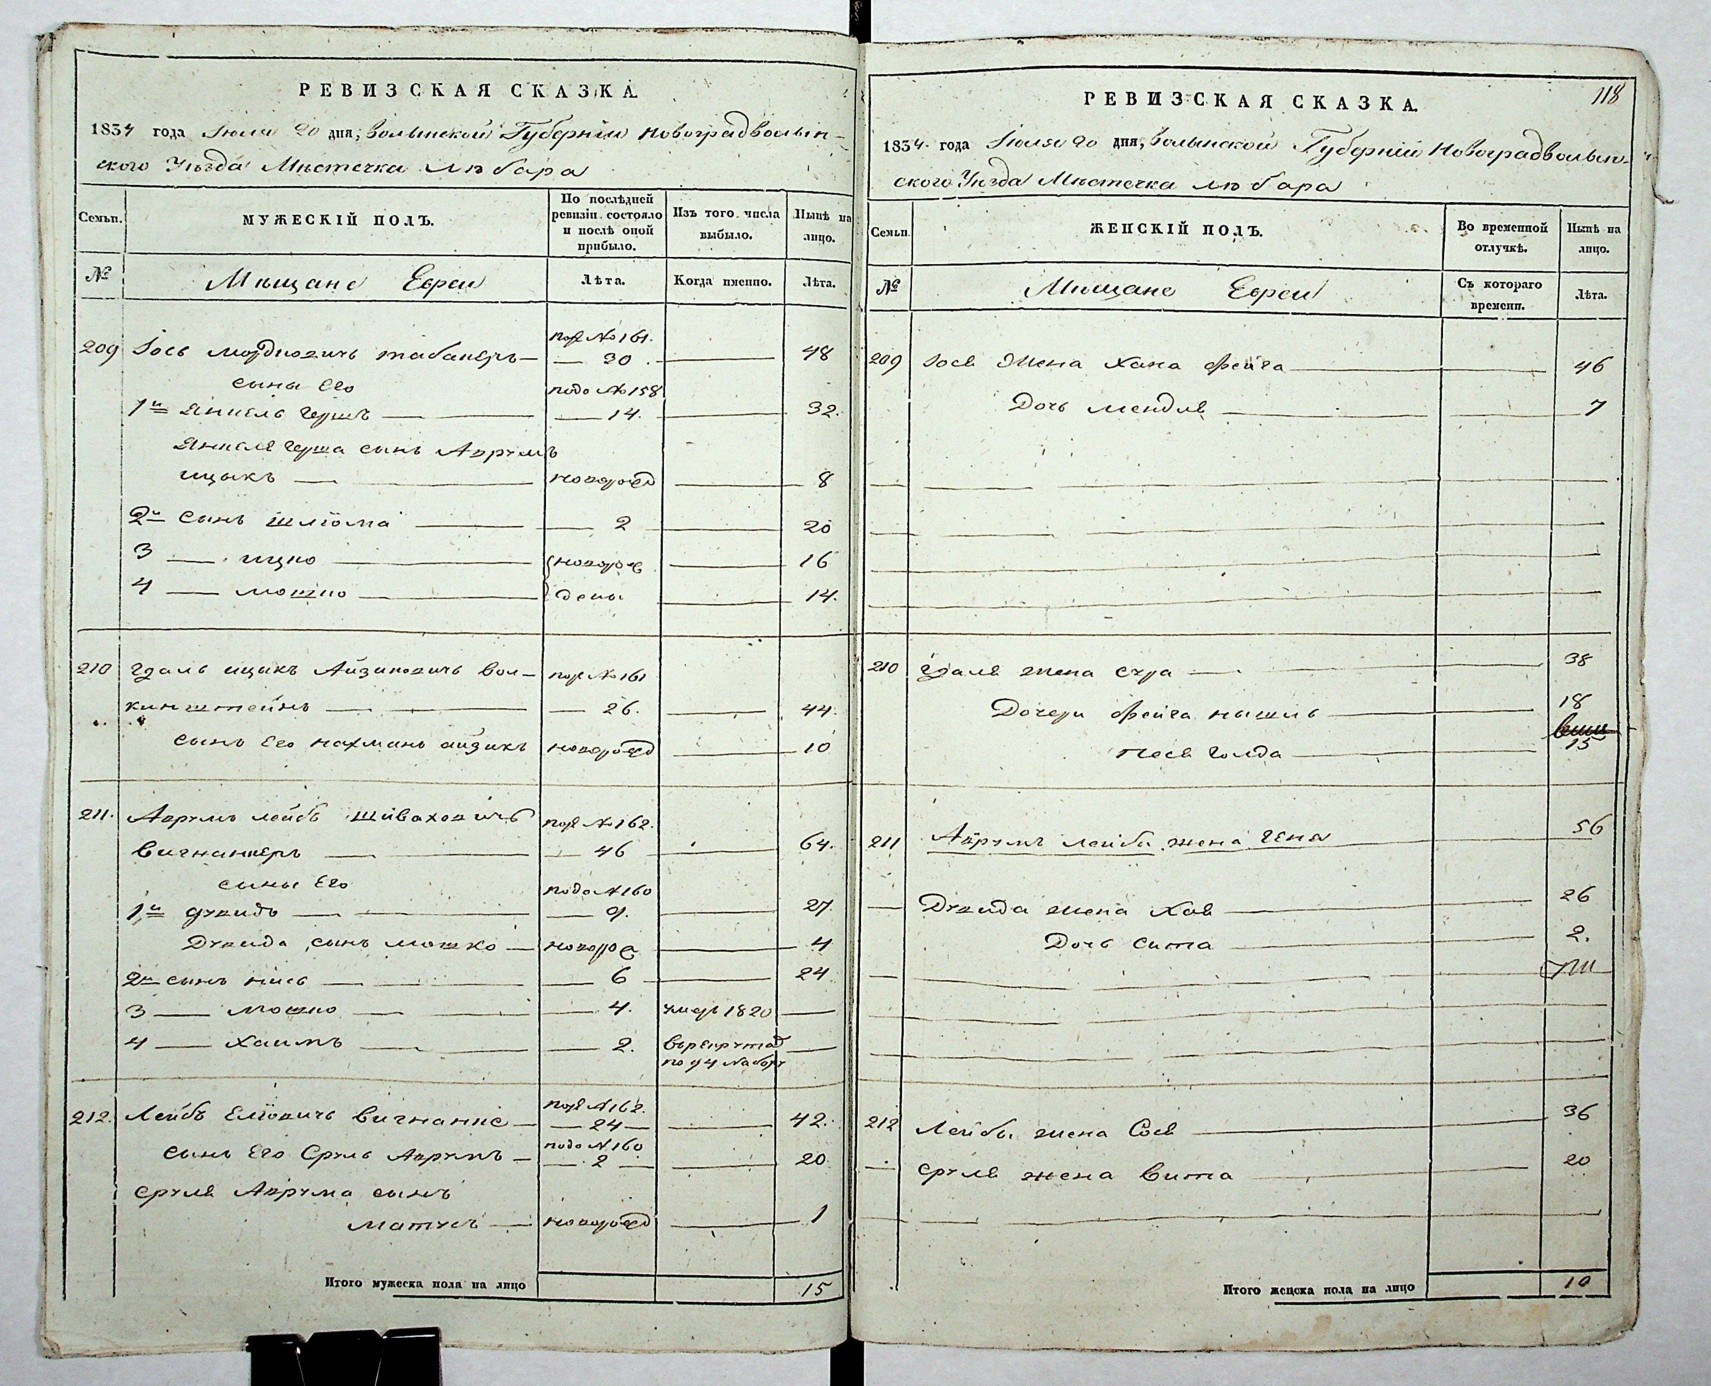 РЕВИЗСКАЯ СКАЗКА.
1834 года Іюля 20 дня, Волынской Губерніи Новоградволын-
ского Уѣзда Мѣстечка Любара
Семьи.
МУЖЕСКІЙ ПОЛЪ.
По послѣдней ревизіи состояло и послѣ оной прибыло.
Изъ того числа выбыло.
Нынѣ на лицо.
№
Мѣщане Евреи
Лѣта.
Когда именно.
Лѣта.
под №161.
209 Іось Мордковичъ Табакеръ — 30 — 48
сыны Его подъ №158
1й Янкель Гершъ — 14. — 32.
Янкеля Герша сынъ Аврумъ
Ицыкъ — новорожд — 8
2й сынъ Шліома — 2 — 20
3 — Ицко — новорож — 16
4 — Мошко — дены — 14.
210 Гдаль Ицыкъ Айзиковичъ Вол- под №161
кинштейнъ — 26. — 44.
сынъ Его Нахманъ Айзикъ новорожд — 10
211. Аврумъ Лейбъ Шиваховичъ под №162.
Вигнанкеръ — 46 — 64.
сыны Его подъ №160
1й Дувидъ — 9. — 27.
Дувида сынъ Мошко — новорож — 4
2й сынъ Нись — 6 — 24
3 — Мошко — 4. умеръ 1820 —
4 — Хаимъ — 2. въ рекрутад —
по 94 набору
под №162.
212. Лейбъ Еліовичъ Вигнанкѣ — 24 — 42.
подъ №160
сынъ Его Сруль Аврумъ — 2 — 20
Сруля Аврума сынъ
Матусъ — новорожд — 1
Итого мужеска пола на лицо 15
118
РЕВИЗСКАЯ СКАЗКА.
1834. года Іюля 20 дня, Волынской Губерніи Новоградволын-
ского Уѣзда Мѣстечка Любара
Семьи.
ЖЕНСКІЙ ПОЛЪ.
Во временной отлучкѣ.
Нынѣ на лицо.
№
Мѣщане Евреи
Съ котораго времени.
Лѣта.
209 Іося жена Хана Фейга — 46
Дочь Мендля — 7
210 Гдаля жена Сура — 38
Дочери Фейга Нышль — 18
Песя Голда — 15
211 Аврумъ Лейби жена Геня 56
— Дувида жена Хая — 26
Дочь Сита — 2.
212 Лейбы жена Сося — 36
— Сруля жена Вита — 20
Итого женска пола на лицо 10